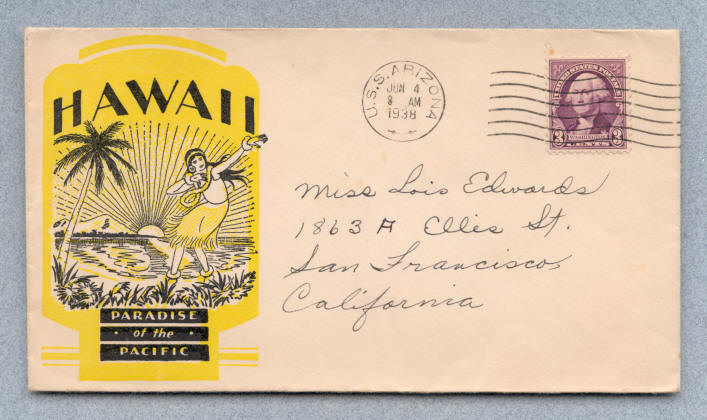 HAWAII
PARADISE
of the
PACIFIC
U.S.S. ARIZONA
JUN 4
8 AM
1938
3 3
WASHINGTON
Miss Lois Edwards
1863 A Ellis St.
San Francisco,
California